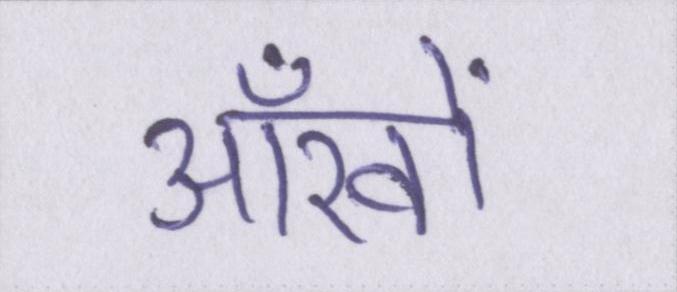 आँखों